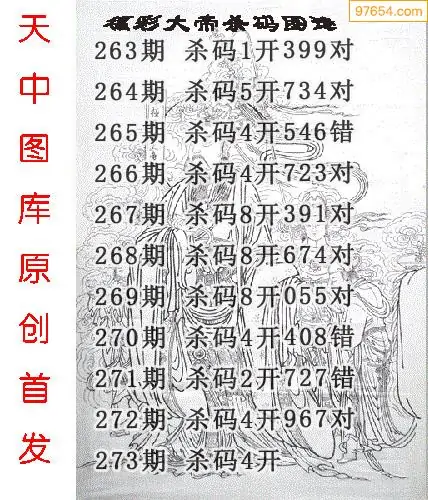 福彩大帝杀码图谜
97654.com
天中图库原创首发
263期 杀码1开399对
264期 杀码5开734对
265期 杀码4开546错
266期 杀码4开723对
267期 杀码8开391对
268期 杀码8开674对
269期 杀码8开055对
270期 杀码4开408错
271期 杀码2开727错
272期 杀码4开967对
273期 杀码4开